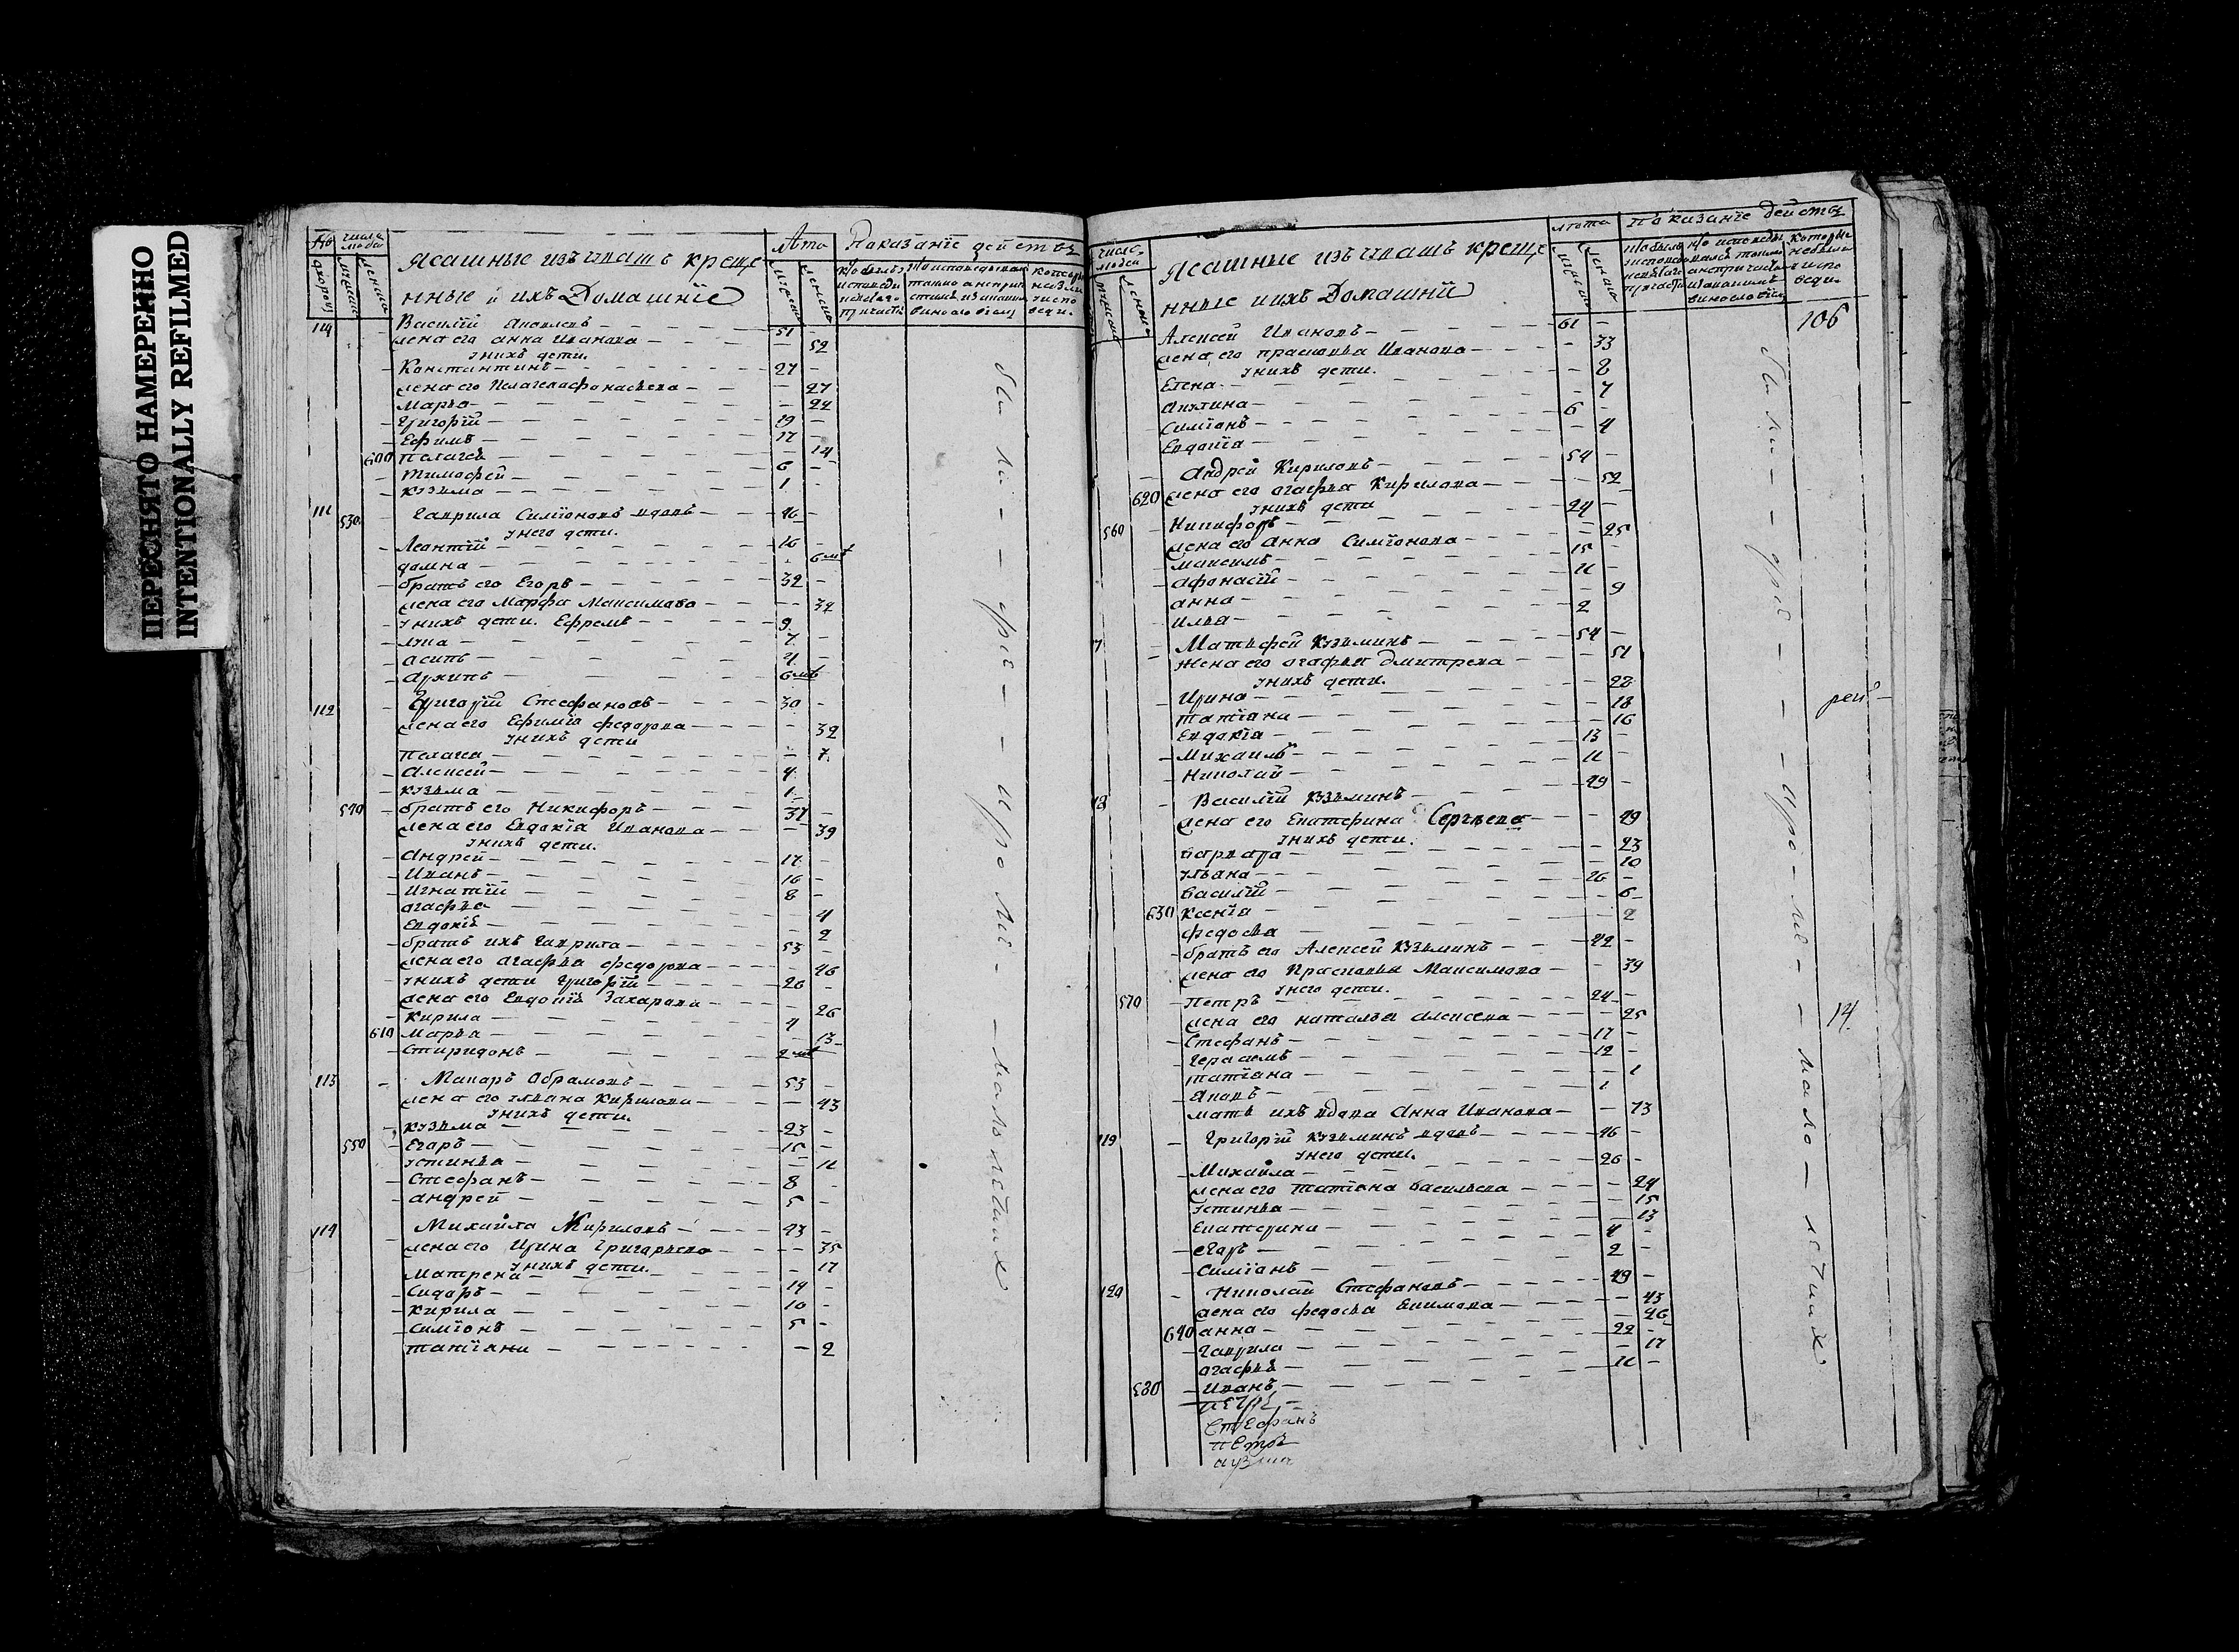 ПЕРЕСНЯТО НАМЕРЕННО
INTENTIONALLY REFILMED
Ясашные изъ чвашъ креще
нные и ихъ Домашніе
Лѣта
Показаніе действъ
Василій Яковлевъ 51
жена его анна Иванова 52
унихъ дети.
Константинъ 27
жена его Пелагея афонасьева 27
Марья 22
Григорій 19
Ефимъ 17
600 пелагея 14
Тимофей 6
кузьма 1
111 530 Гаврила Симіоновъ вдовъ 46
унего дети.
Леонтій 16
домна
братъ его Егоръ 32
жена его Марфа Максимова 32
унихъ дети. Ефремъ 9
лука 7
асипъ 4
архипъ
112 Григорій Стефановъ 30
жена его Ефимія федорова 32
унихъ дети
Пелагея 7
алексей 4
кузьма 1
540 братъ его Никифоръ 37
жена его Евдокія Иванова 39
унихъ дети.
Андрей 17
Иванъ 16
Игнатій 8
огафья 4
Евдокія 2
братъ ихъ Гаврила 53
жена его огафья федорова 46
унихъ дети Григорій 26
жена его Евдокія Захарова 26
Кирила 4
610 Марья 13
Спиридонъ
113 Макаръ Абрамовъ 53
жена его ульяна Кирилова 43
унихъ дети.
кузьма 23
550 Егаръ 15
устинья 11
Стефанъ 8
андрей 5
114 Михайла Кириловъ 43
жена его Ирина Григорьева 35
унихъ дети.
Матрена 17
Сидаръ 14
Кирила 10
Симіонъ 5
татіана 2
были при и про малолетних
Ясашные изъ чвашъ креще
нные и ихъ Домашніи
лѣта
показаніе действъ
106
Алексей Ивановъ 61
жена его прасковья Иванова 33
унихъ дети.
Елена 8
акулина 7
Симіонъ 6
Евдокія 4
Андрей Кириловъ 54
620 жена его огафья Кирилова 52
унихъ дети
560 Никифоръ 24
жена его Анна Симіонова 25
максимъ 15
афонасій 11
анна 9
илья 2
Матьфей Кузьминъ 54
жена его огафья дмитрева 51
унихъ дети.
Ирина 28
татіана 18
Евдокія 16
Михаилъ 13
Николай 11
Василій Кузьминъ 49
жена его Екатерина Сергѣева 49
унихъ дети.
варвара 23
ульяна 20
василій 16
630 ксенія 6
федосья 2
братъ его Алексей Кузьминъ 42
жена его Прасковья Максимова 39
унего дети.
570 Петръ 24
жена его наталья алексеева 25
Стефанъ 17
Герасимъ 12
татіана 1
Яковъ 1
мать ихъ вдова Анна Иванова 73
119 Григорій Кузьминъ вдовъ 46
унего дети.
Михайла 26
жена его татіана васильева 24
устинья 15
Екатерина 13
егоръ 4
Симіонъ 2
120 Николай Стефановъ 49
жена его федосья Екимова 43
640 анна 26
Гаврила 22
огафья 17
580 Иванъ 11
Стефанъ
Петръ
14